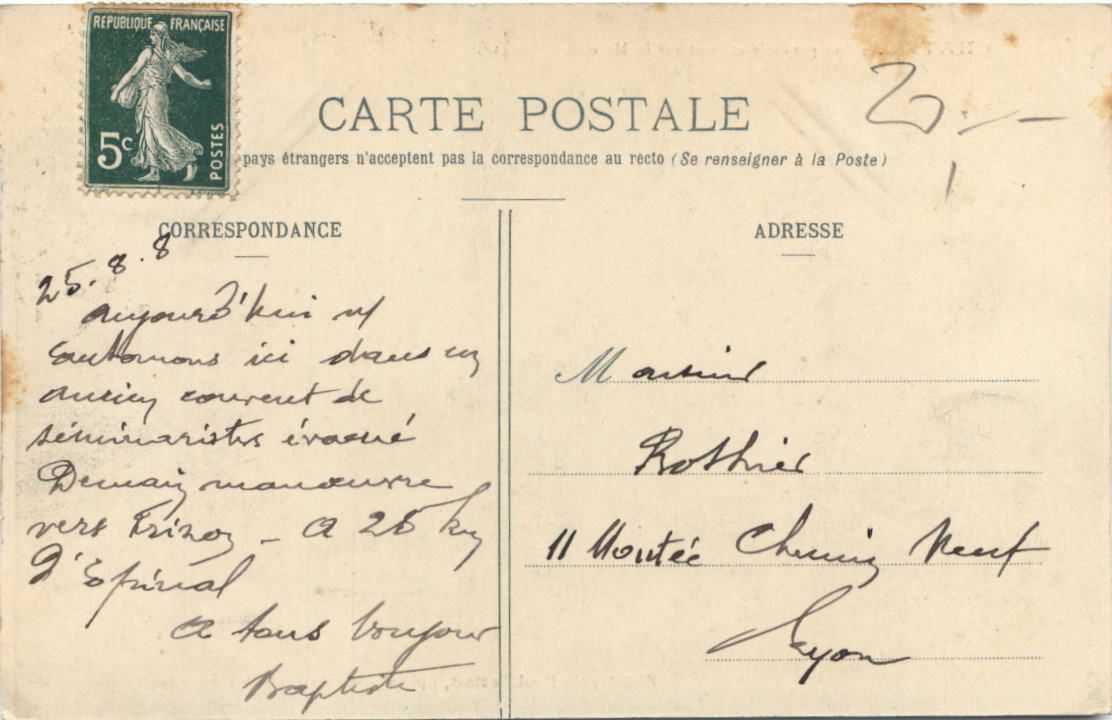 REPUBLIQUE FRANÇAISE
5c
POSTES
CARTE POSTALE
pays étrangers n'acceptent pas la correspondance au recto (Se renseigner à la Poste)
CORRESPONDANCE
ADRESSE
25.8.8
aujourd'hui
cantonnons ici dans un
ancien couvent de
séminaristes évacué
Demain manœuvre
vers - a 25 km
d'Epinal
a tous bonjour
Baptiste
Monsieur
Rothier
11 Montée Chemin Neuf
Lyon